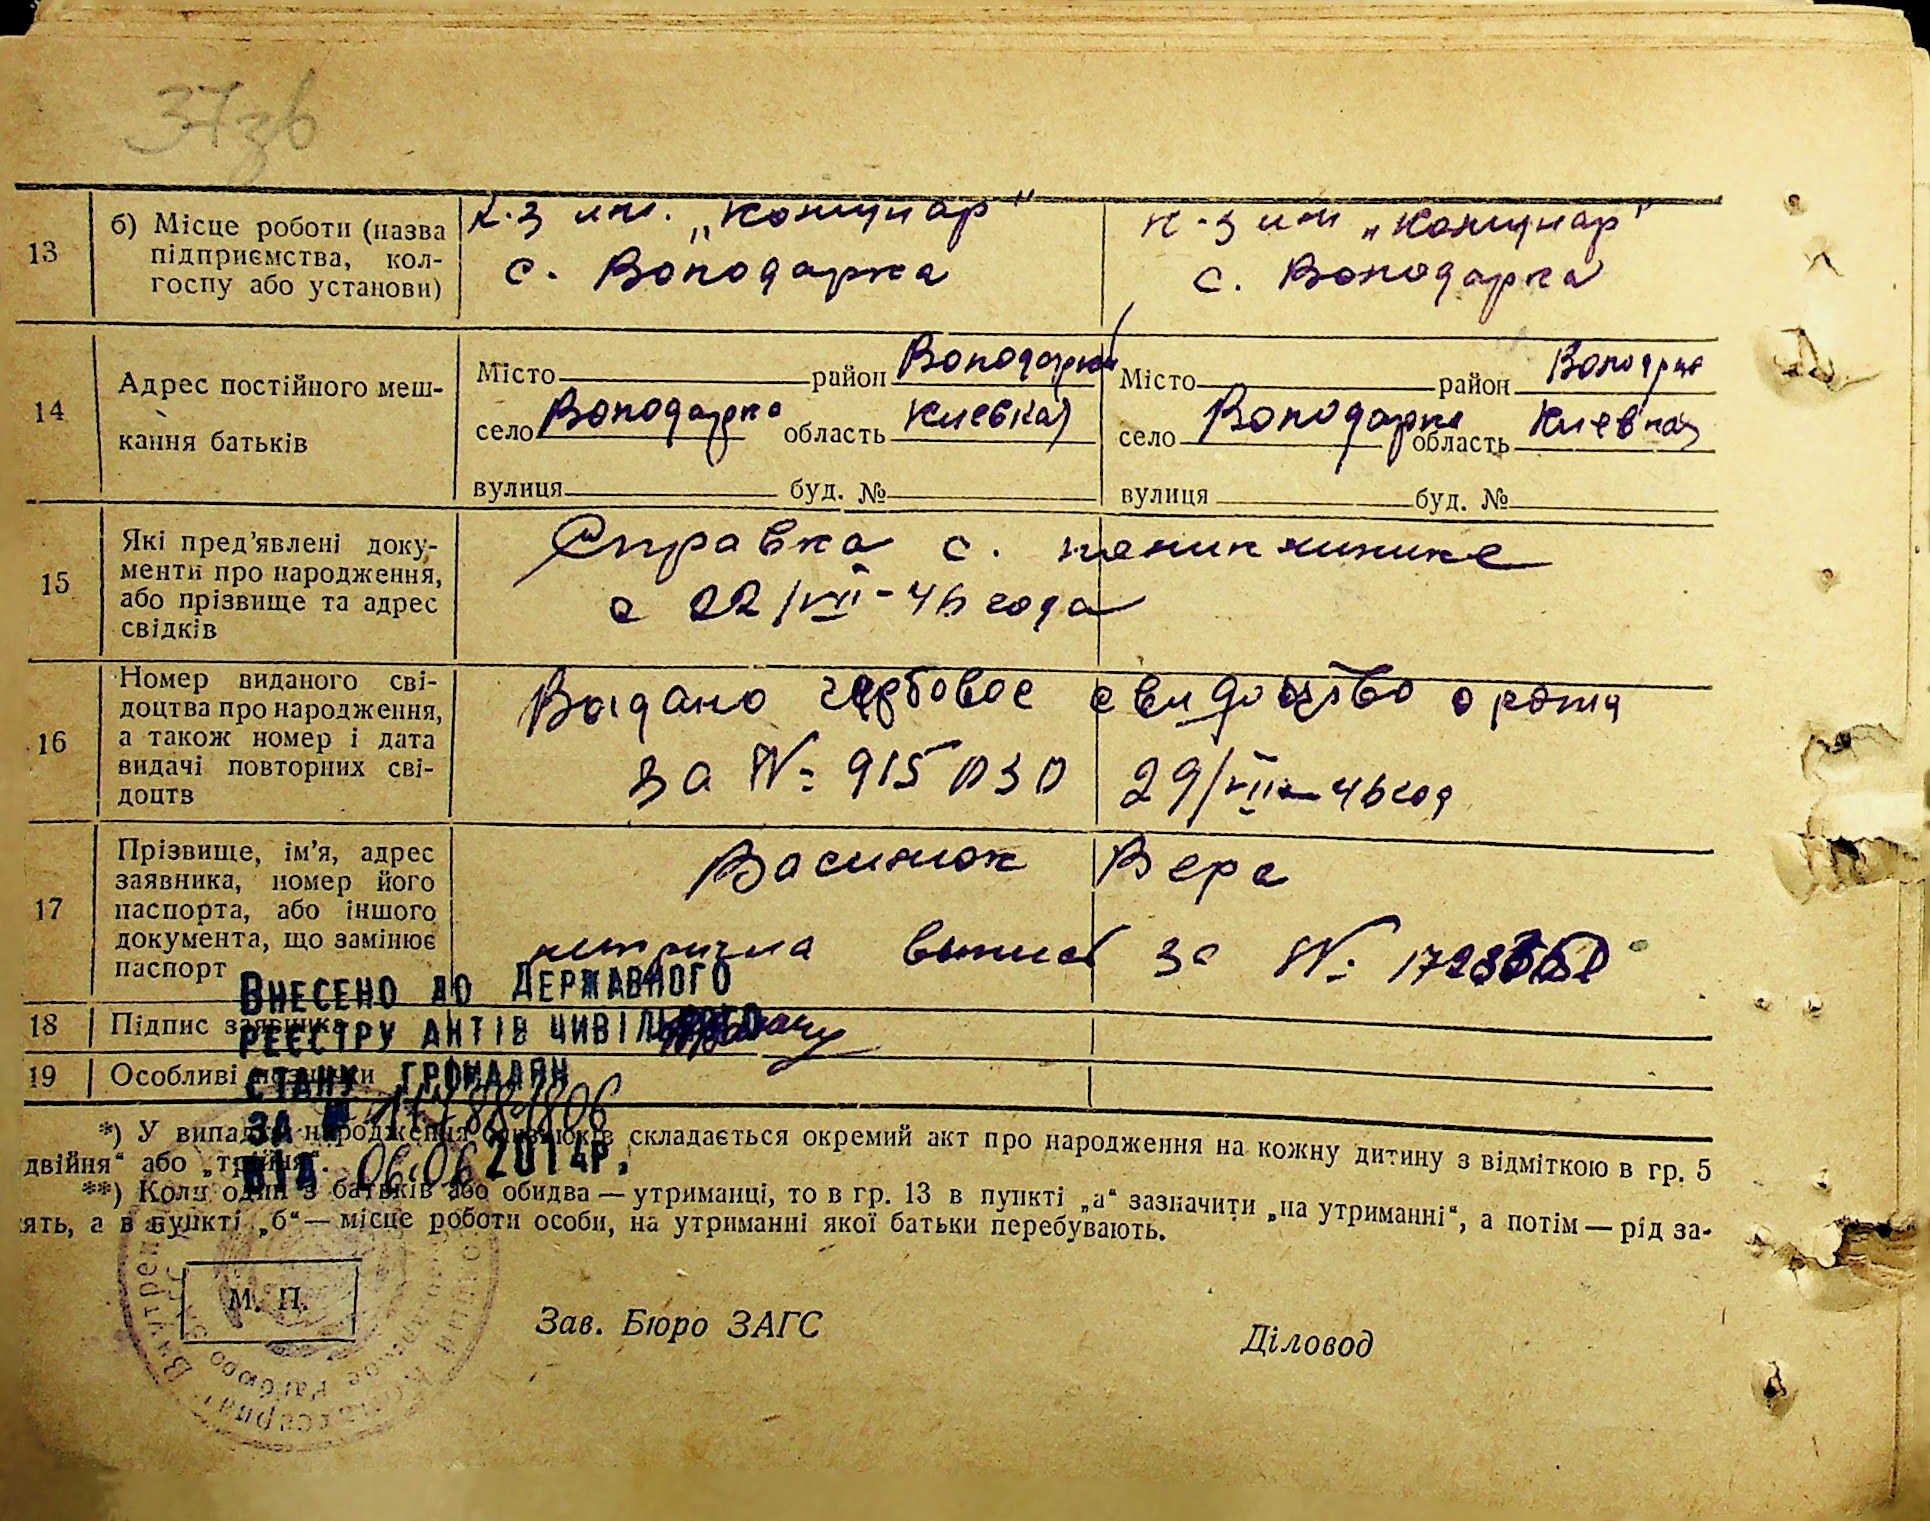 37зв
13
б) Місце роботи (назва
підприємства, кол-
госпу або установи)
к-з им. „Комунар"
с. Володарка
к-з им „Комунар"
с. Володарка
14
Адрес постійного меш-
кання батьків
Місто район Володарка
село Володарка область Киевкая
вулиця буд. №
Місто район
село Володарка область
вулиця буд. №
15
Які пред’явлені доку-
менти про народження,
або прізвище та адрес
свідків
Справка с.
с 22/VII-46 года
16
Номер виданого сві-
доцтва про народження,
а також номер і дата
видачі повторних сві-
доцтв
Видано гербовое
за № 915030 29/VIII-46 год
17
Прізвище, ім’я, адрес
заявника, номер його
паспорта, або іншого
документа, що замінює
паспорт
Вера
за №
18 Підпис заявника
19 Особливі
Внесено до Державного
реєстру актів цивільного
стану громадян
за №
від 06.06 2014р.
*) У випадку народження близнюків складається окремий акт про народження на кожну дитину з відміткою в гр. 5
двійня“ або „трійня“.
**) Коли один з батьків або обидва — утриманці, то в гр. 13 в пункті „а“ зазначити „на утриманні“, а потім — рід за-
ять, а в пункті „б“ — місце роботи особи, на утриманні якої батьки перебувають.
М. П.
Зав. Бюро ЗАГС
Діловод